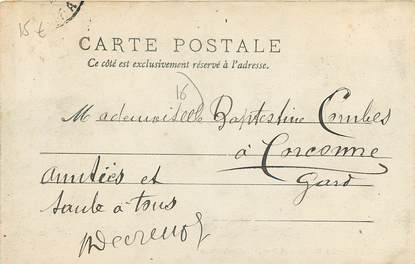 15 €
CARTE POSTALE
Ce côté est exclusivement réservé à l'adresse.
16
Mademoiselle Baptestine Combes
à Corconne
Gard
Amitiés et
à tous